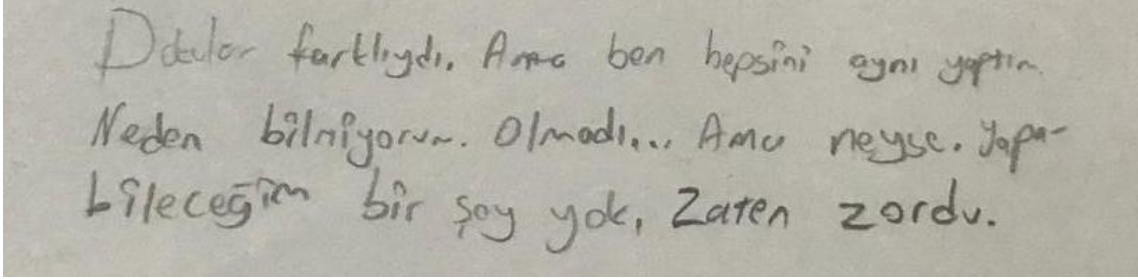 Dokular farklıydı. Ama ben hepsini aynı yaptım.
Neden bilmiyorum. Olmadı... Ama neyse. Yapa-
bileceğim bir şey yok, Zaten zordu.